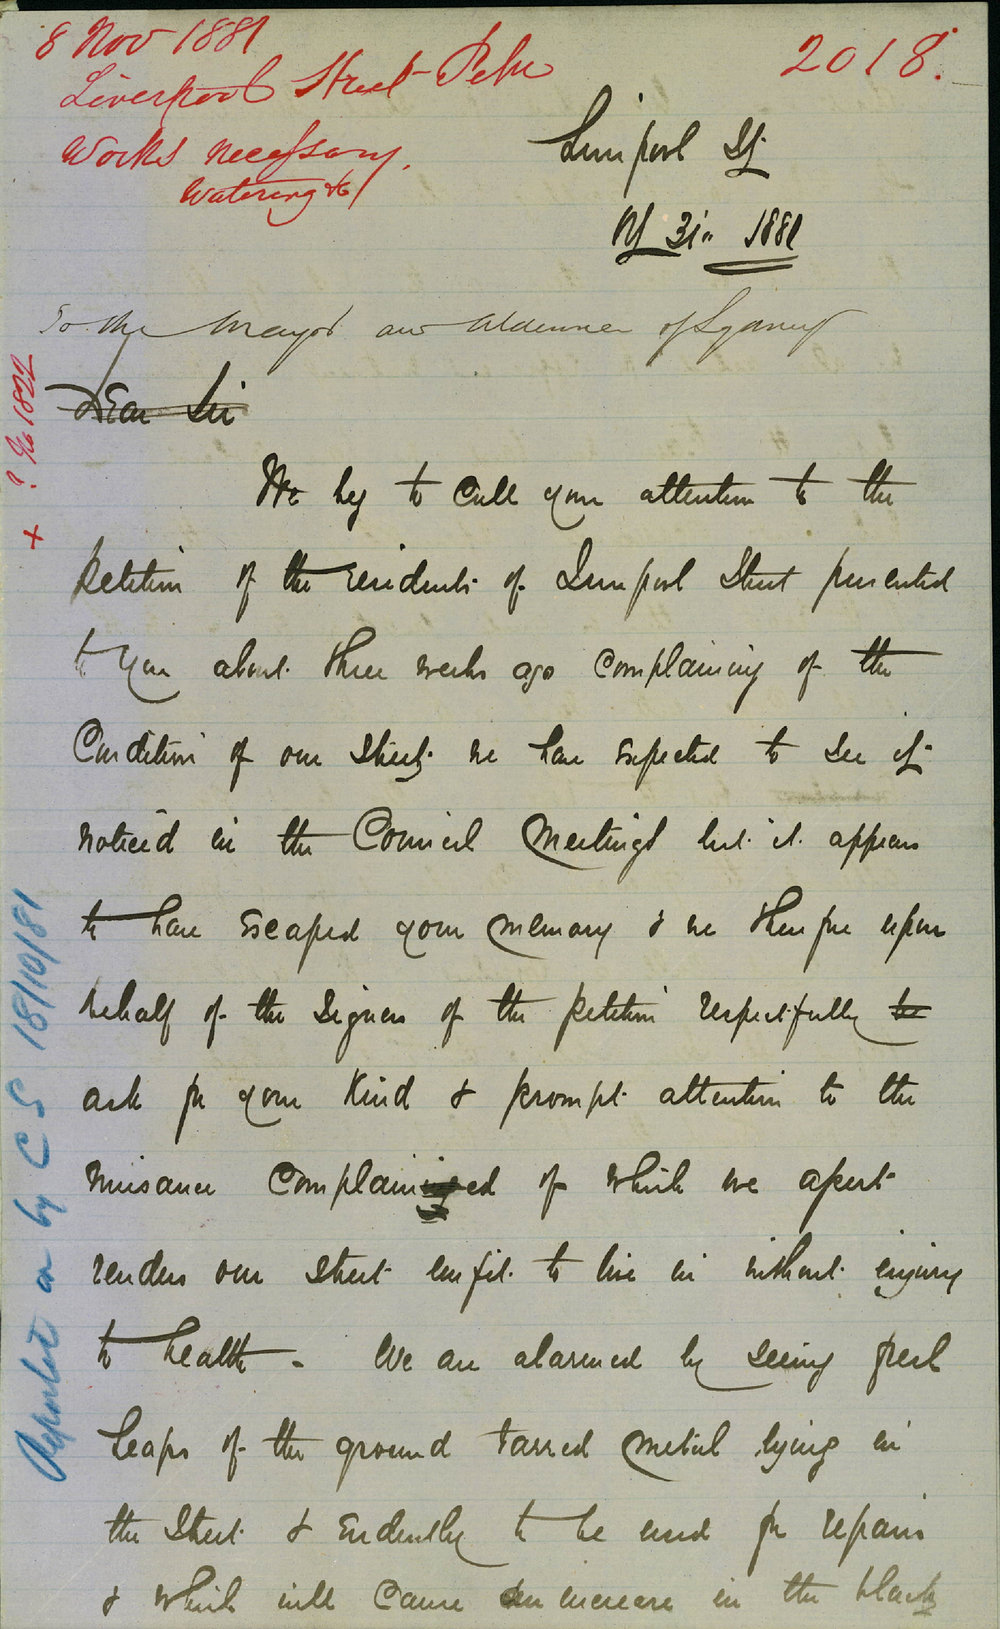 8 Nov 1881
2018.
Liverpool Street Petn
Works necessary.
Watering &c
Liverpool St
31st 1881
To the Mayor and Aldermen of Sydney
Dear Sir
? No 1822
+
We beg to call your attention to the
petition of the residents of Liverpool Street presented
to you about three weeks ago complaining of the
Condition of our Street. we have expected to see it
noticed in the Council Meetings but it appears
to have escaped your memory & we therefore upon
behalf of the signers of the petition respectfully to
ask for your kind & prompt attention to the
nuisance Complained of which we assert
renders our Street unfit to live in without injury
to health - We are alarmed by seeing fresh
heaps of the ground tarred metal lying in
the Street & Evidently to be used for repairs
& which will cause an increase in the black
Reported on by C S 18/10/81